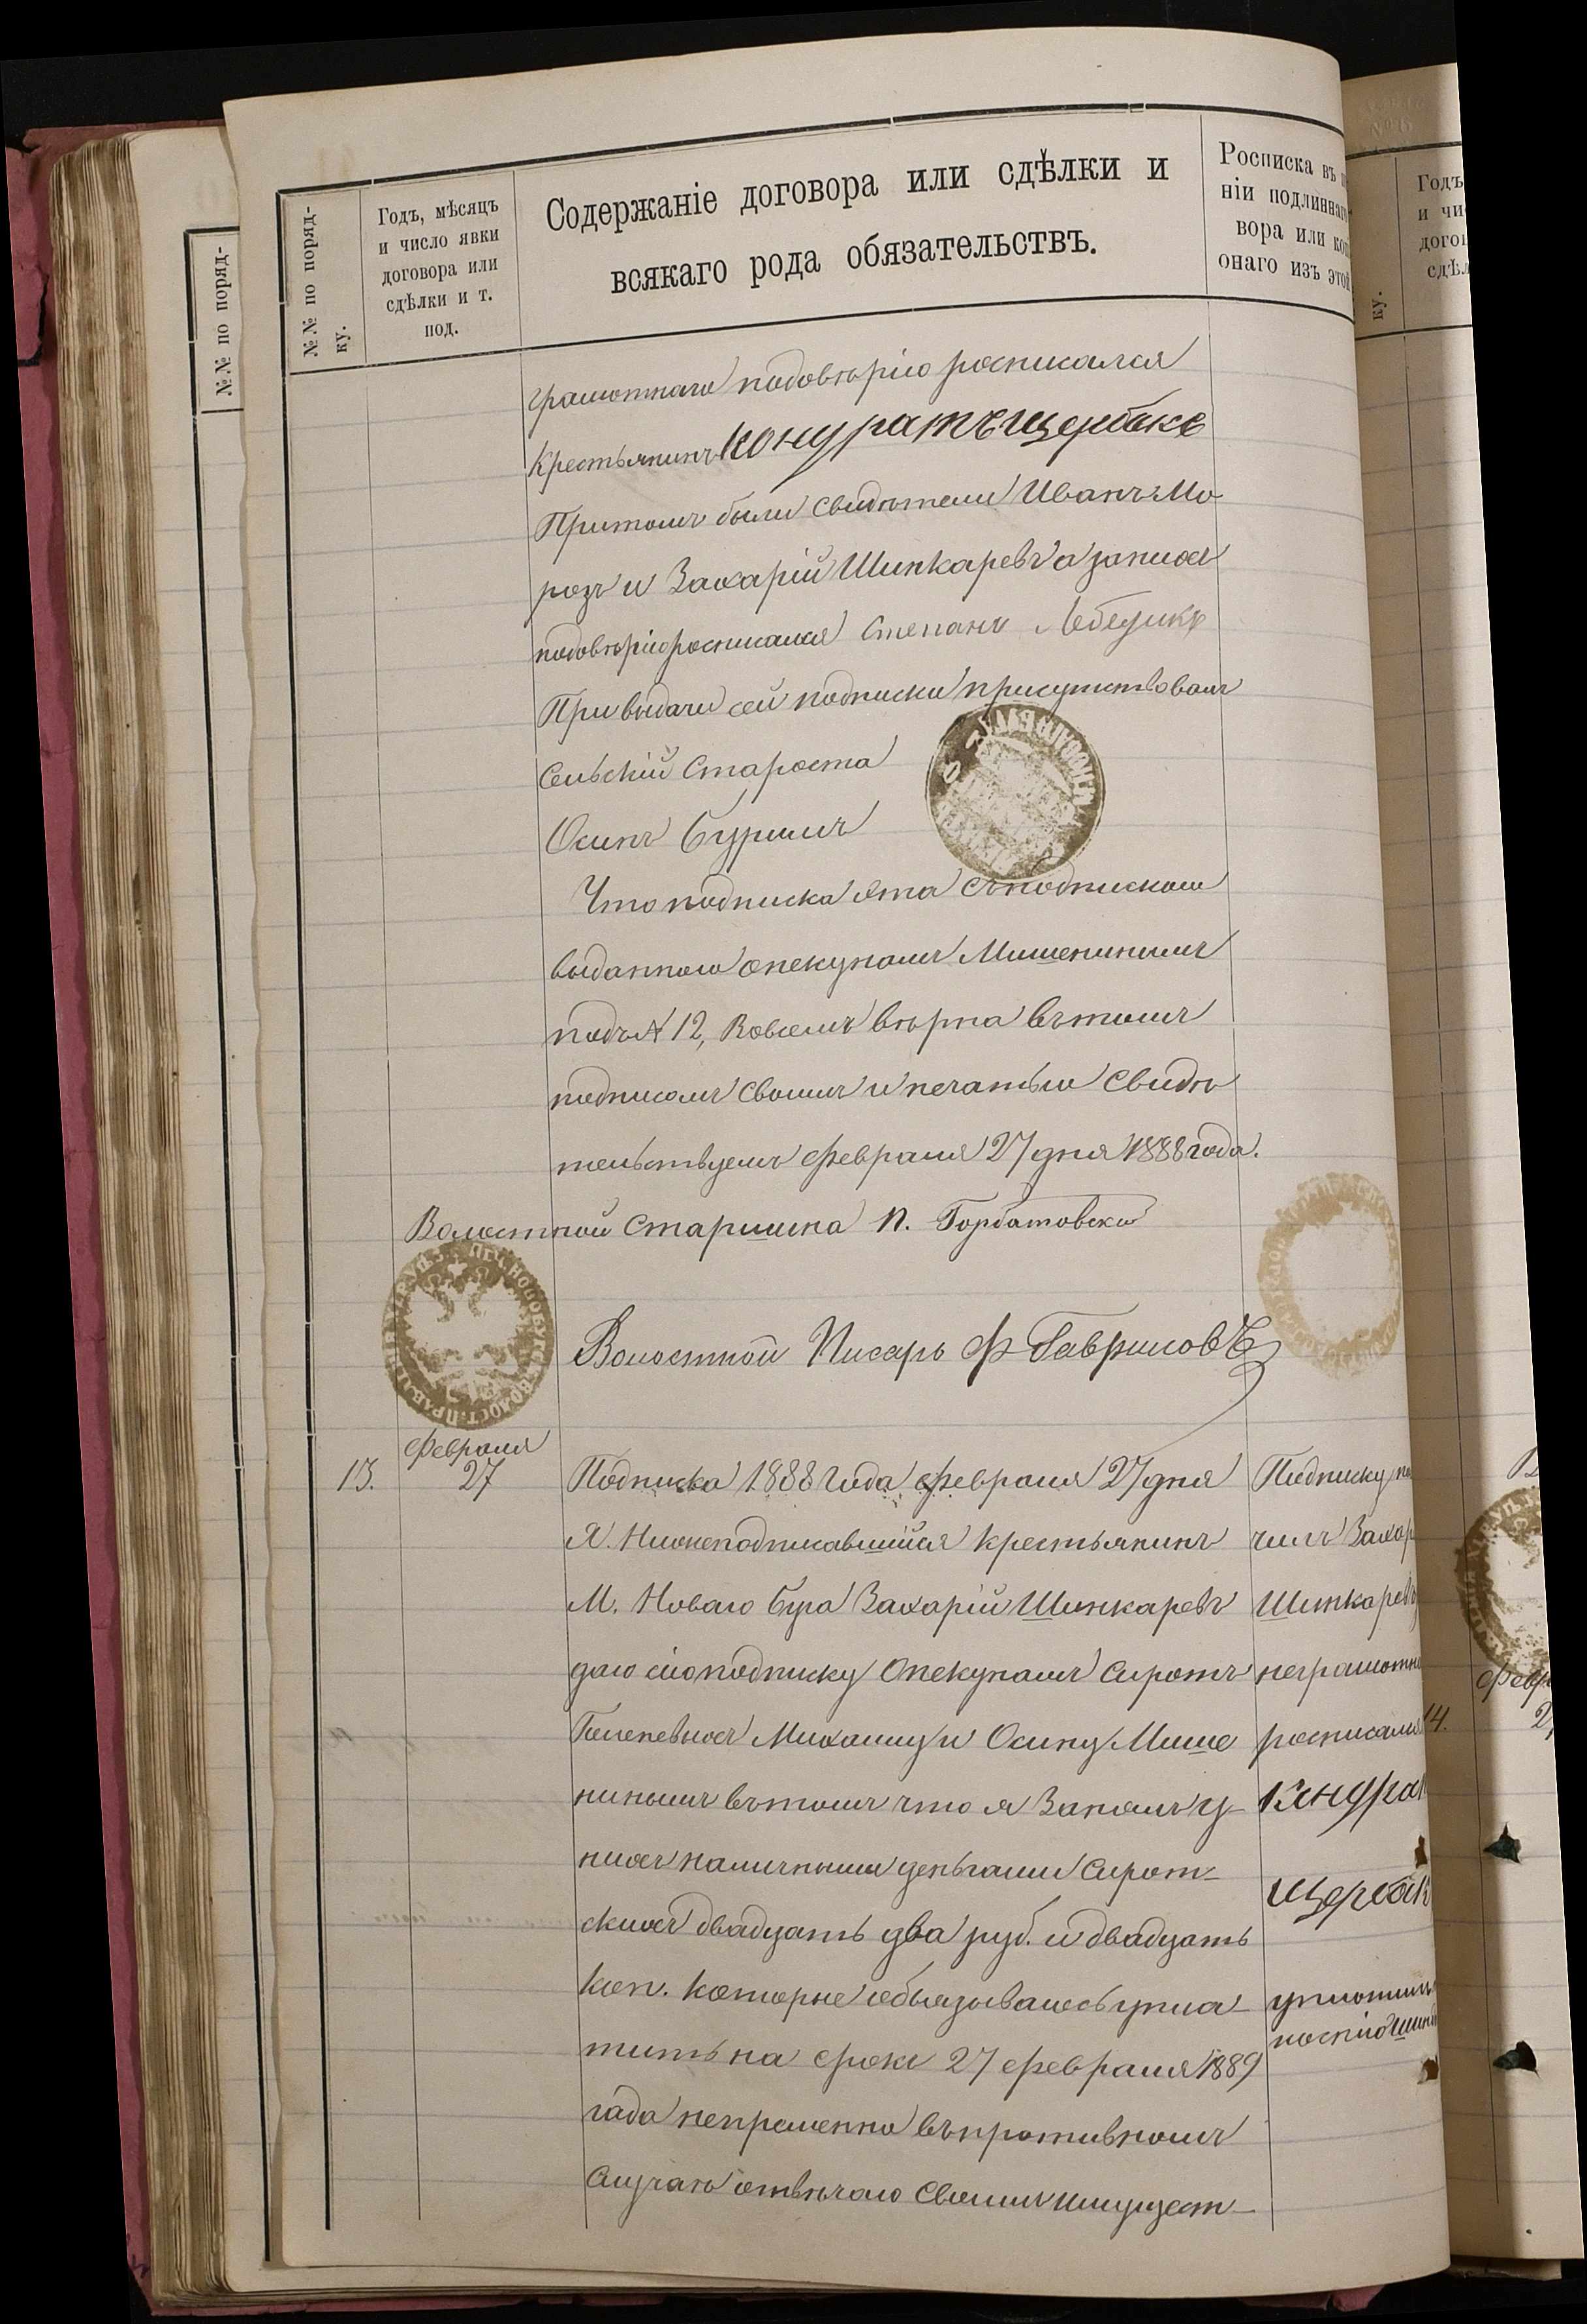 №№ по поряд-
№№ по поряд-
ку.
Годъ, мѣсяцъ
и число явки
договора или
сдѣлки и т.
под.
Содержаніе договора или сдѣлки и
всякаго рода обязательствъ.
Росписка въ
ніи подлиннаг
вора или коп
онаго изъ этой
ку.
Годъ
и чи
догов
сдѣл
грамотнаго подовѣрію росписался
Крестьянинъ Кондратъ Щербакъ
Притомъ были свидѣтели Иванъ Мо-
розъ и Захарій Шинкаревъ а за нихъ
подовѣрію росписался Степанъ Лебедикъ
При выдачи сей подписки присутствовалъ
Сельскій Староста
Осипъ Бурлимъ
Что подписка эта съ подпискою
выданною опекунамъ Мишенинымъ
подъ № 12, Вовсемъ вѣрна въ томъ
подписомъ своимъ и печатью свидѣ
тельствуемъ февраля 27 дня 1888 года.
Волостной Старшина П. Горбатовскій
Волостной Писарь Ф Гавриловъ
13.
февраля
27
Подписка 1888 Года, февраля 27 дня
Я. Нижеподписавшійся крестьянинъ
М. Новаго Буга Захарій Шинкаревъ
даю сію подписку Опекунамъ Сиротъ
Михаилу и Осипу Мише
нинымъ въ томъ что я Занялъ у-
нихъ наличными деньгами Сирот-
скихъ двадцать два руб. и двадцать
коп. которые обязываюсь упла-
тить на срокъ 27 февраля 1889
года непременно въ противномъ
Случаѣ отвѣчаю своимъ имущест-
Подписку по
чилъ Захар
Шинкаревъ
неграмотны
росписался
Кондрат
Щербак
14.
февр
2